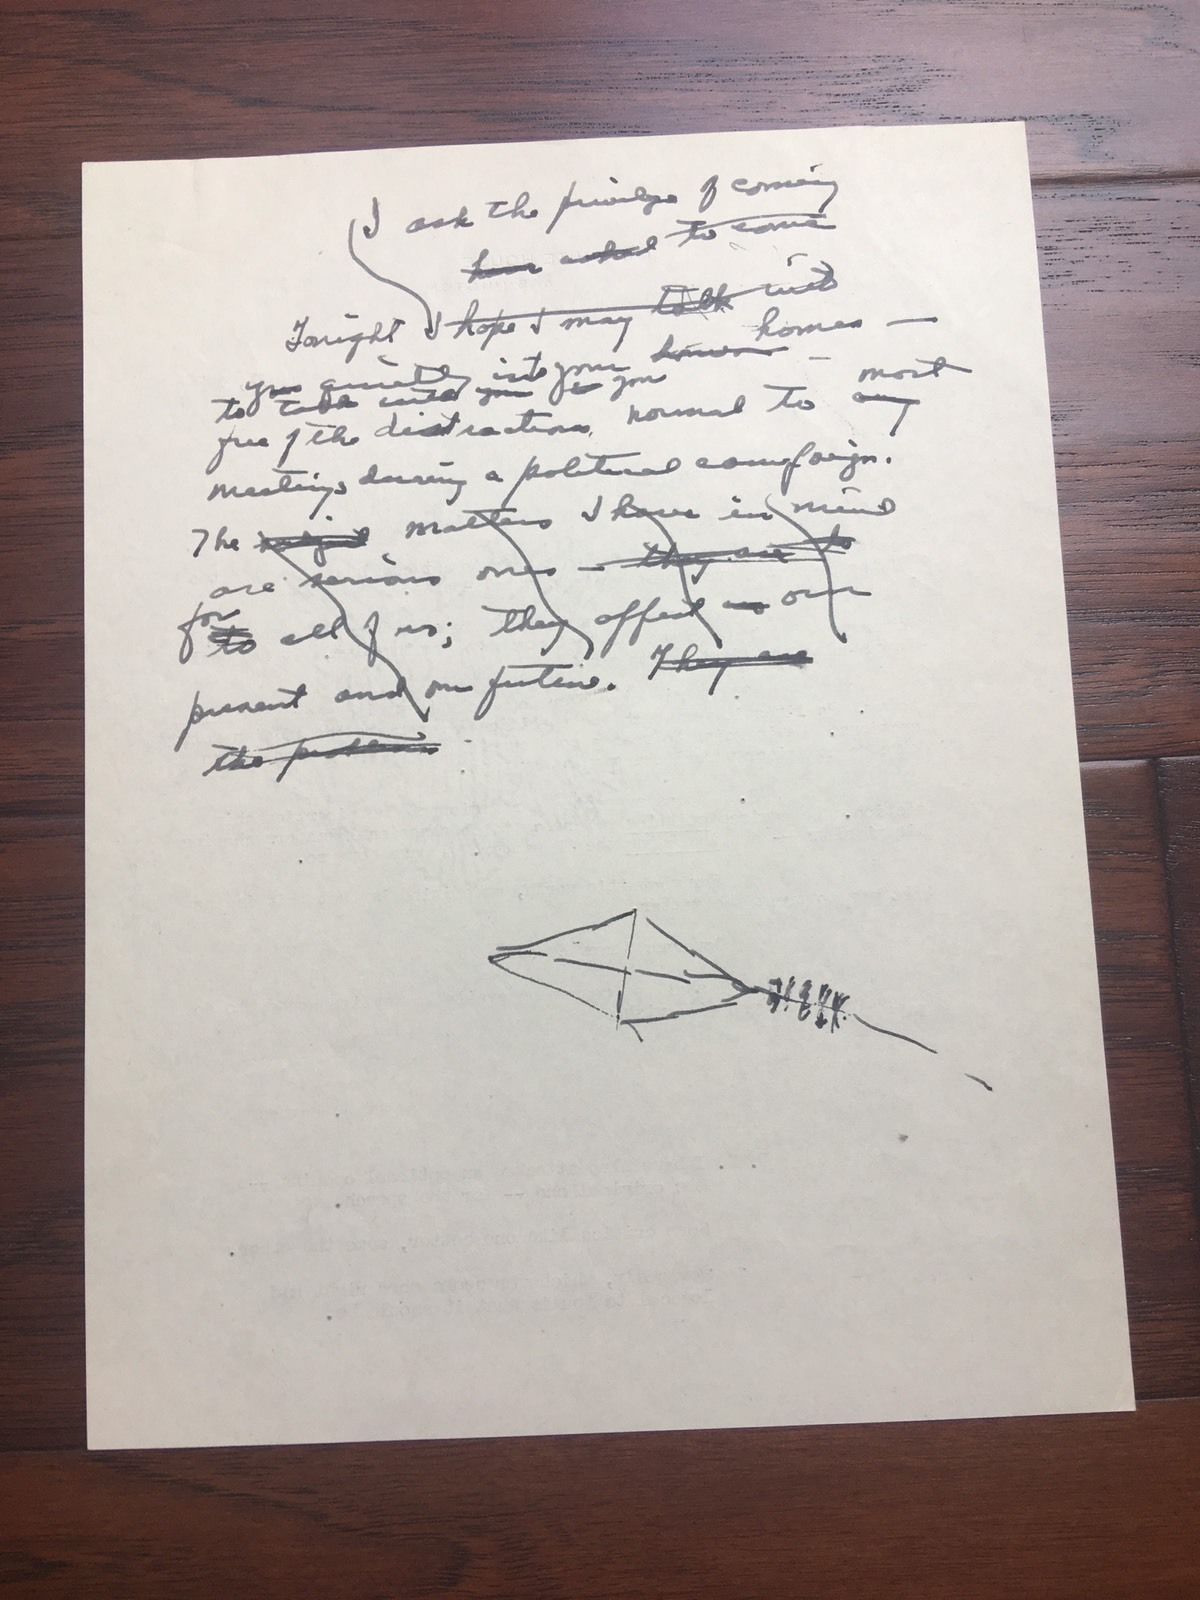 I ask the privilege of coming
have asked to come
Tonight I hope I may talk with
you quietly into your homes homes —
to talk with you to you
free of the distractions normal to any most
meetings during a political campaign.
The subject matters I have in mind
are serious ones — they are to
for to all of us; they affect us our
present and our future. They are
the problems